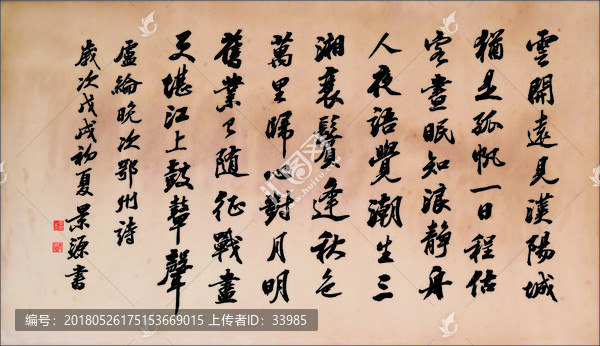 雲開遠見漢陽城
猶是孤帆一日程估
客晝眠知浪靜舟
人夜語覺潮生三
湘衰鬢逢秋色
萬里歸心對月明
舊業已隨征戰盡
更堪江上鼓鼙聲
盧綸晚次鄂州詩
歲次戊戌初夏景源書
编号：20180526175153669015 上传者ID：33985